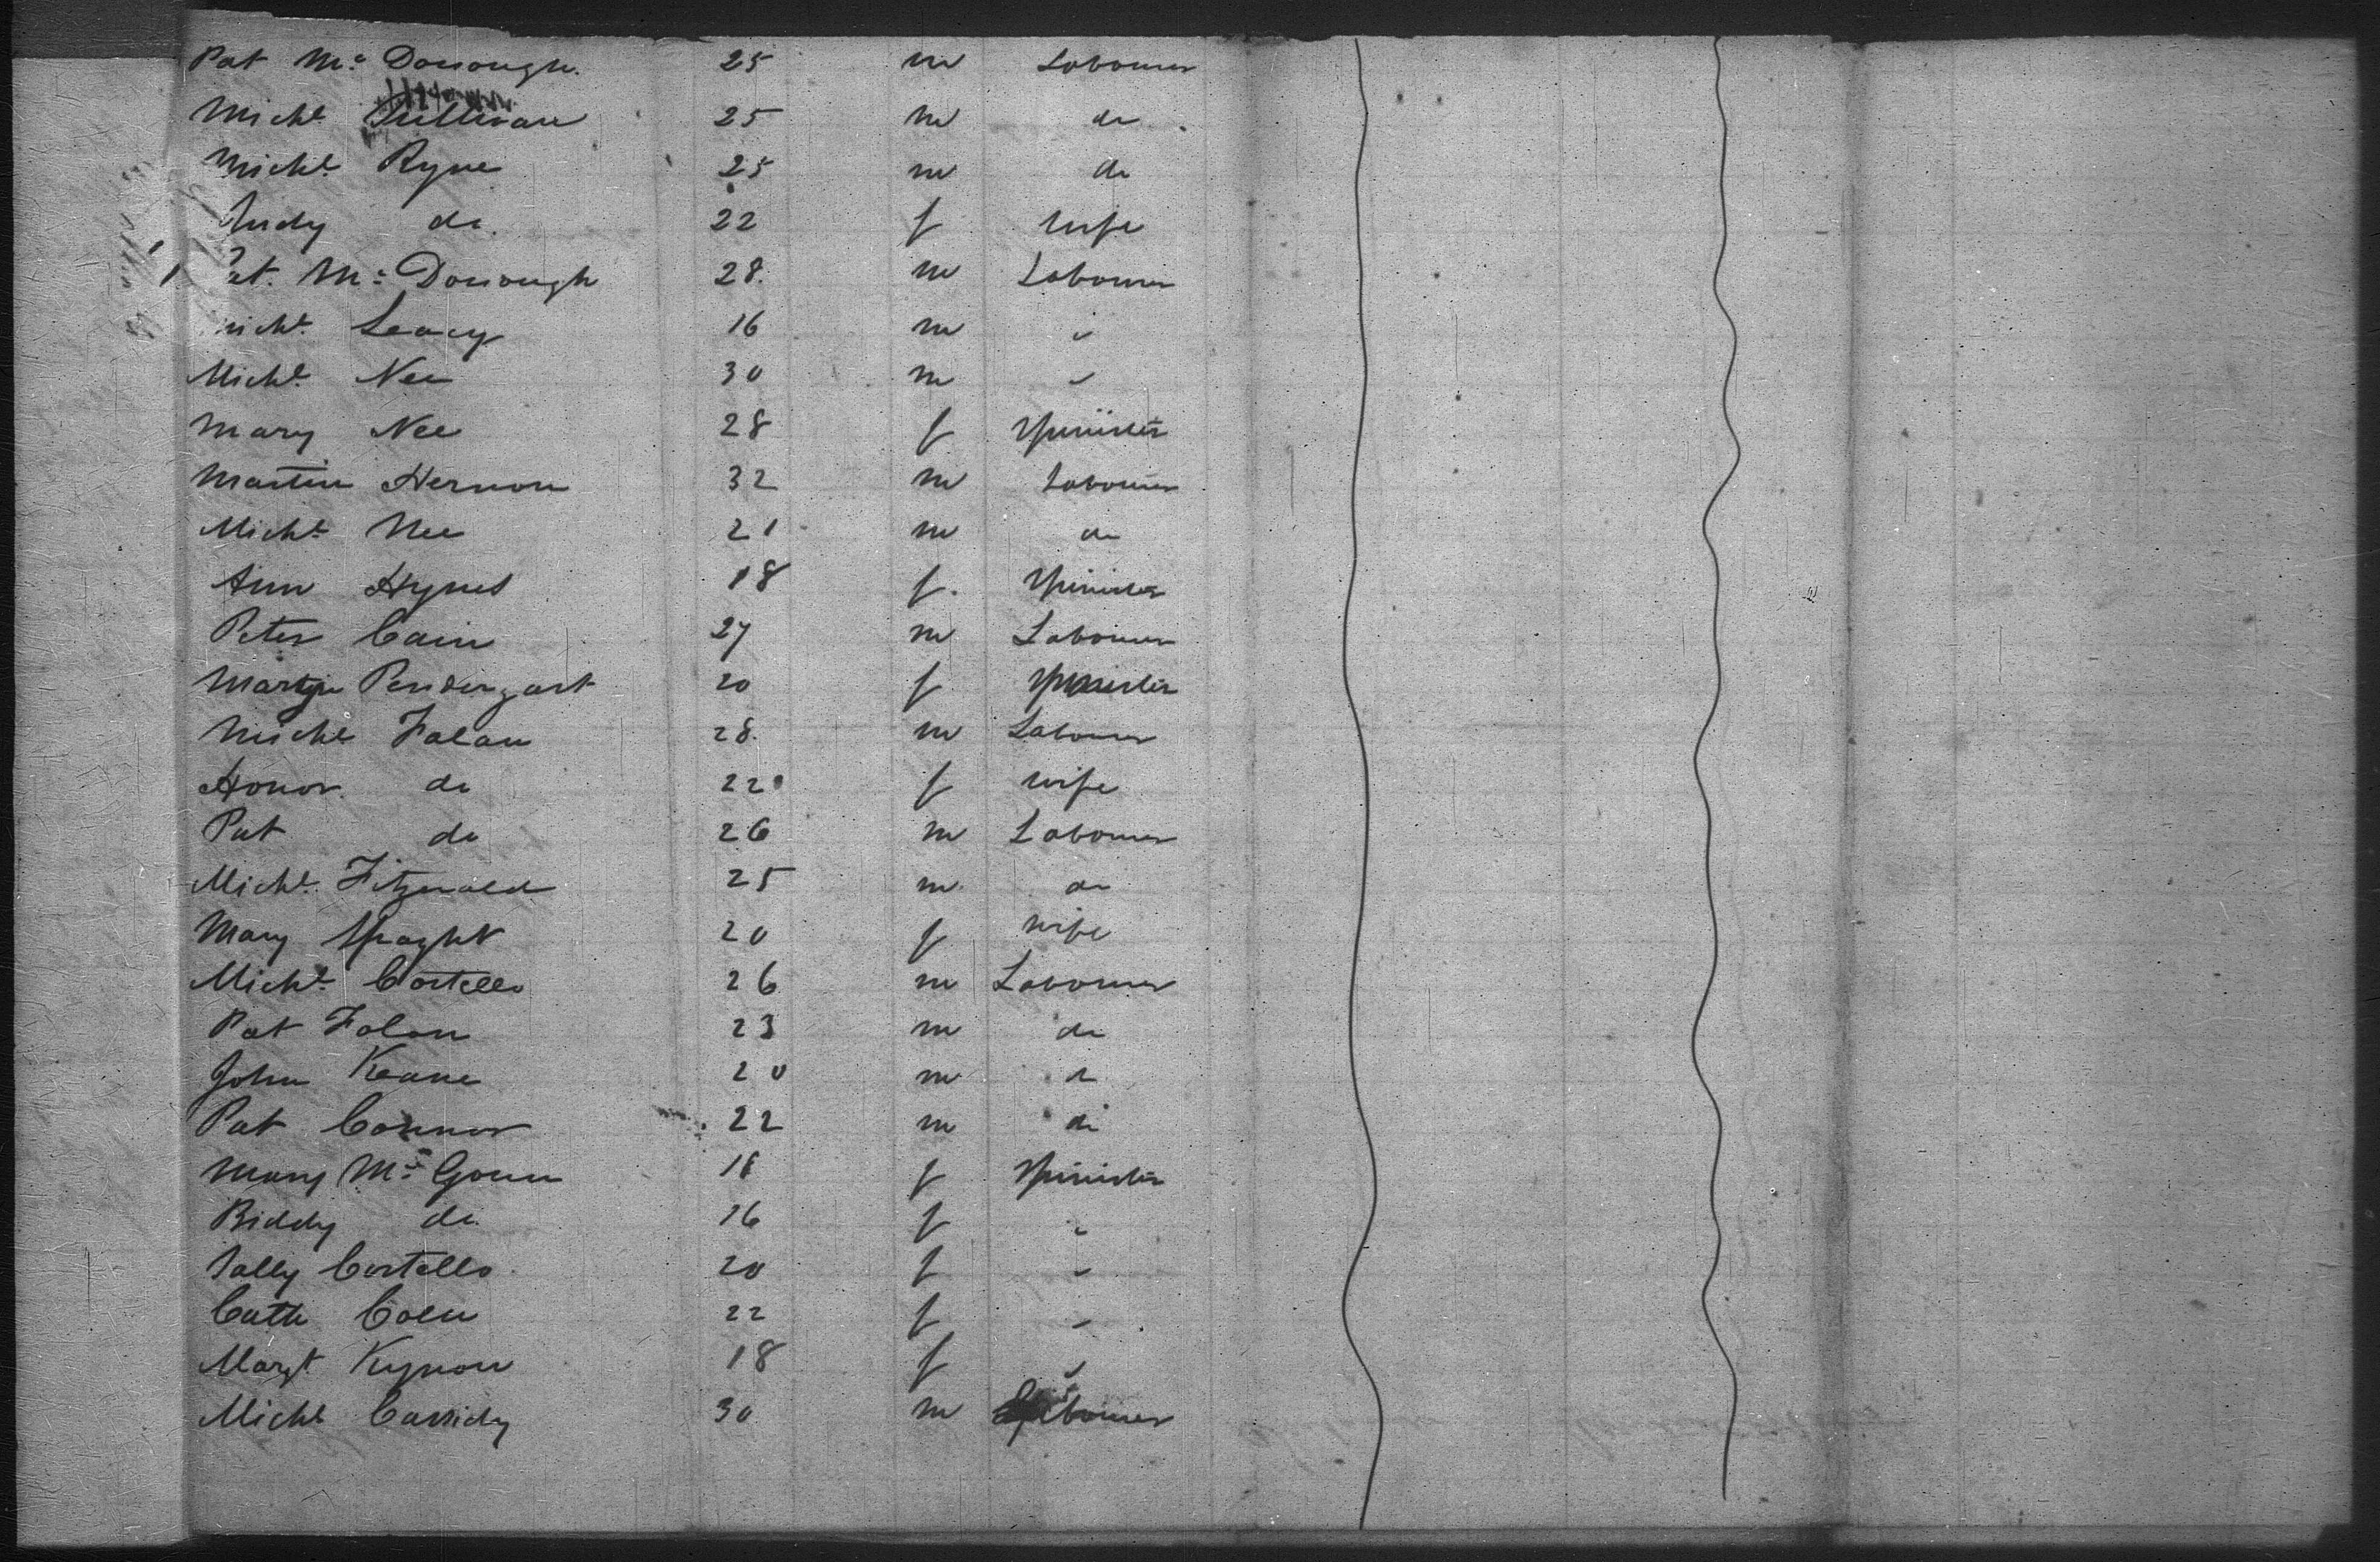 Pat Mc Donough. 25 m Labourer
Michl Sullivan 25 m do
Michl Ryne 25 m do
Judy do. 22 f wife
Pat. Mc Donough 28. m Labourer
Michl Leacy 16 m "
Michl Nee 30 m "
Mary Nee 28 f Spinister
Martin Hernon 32 m Labourer
Michl Nee 21 m do
Ann Hynes 18 f. Spinister
Peter Cain 27 m Labourer
Pendergast 20 f Spinister
Michl Falan 28. m Labourer
Honor. do 22 f wife
Pat do 26 m Labourer
Michl. Fitzgerald 25 m do
Mary Spaght 20 f wife
Michl Costello 26 m Labourer
Pat Folan 23 m do
John Keane 20 m do
Pat Connor 22 m do
Mary Mc Goun 18 f Spinister
Biddy do. 16 f "
Sally Costello. 20 f "
Cath Coen 22 f "
Margt Kynon 18 f "
Michl Cassidy 30 m Labourer